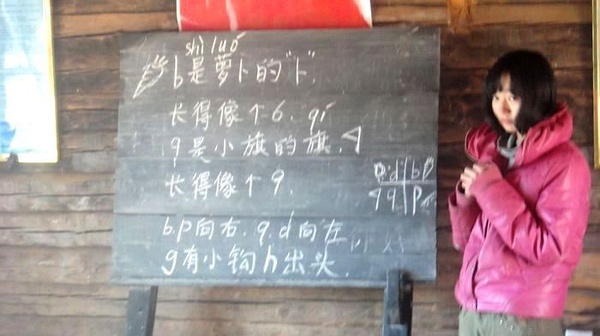 shì luó
b是萝卜的"卜".
长得像个6. qí
q是小旗的旗.
长得像个9.
d b
q p
b.p向右.q.d向左
g有小钩h出头.